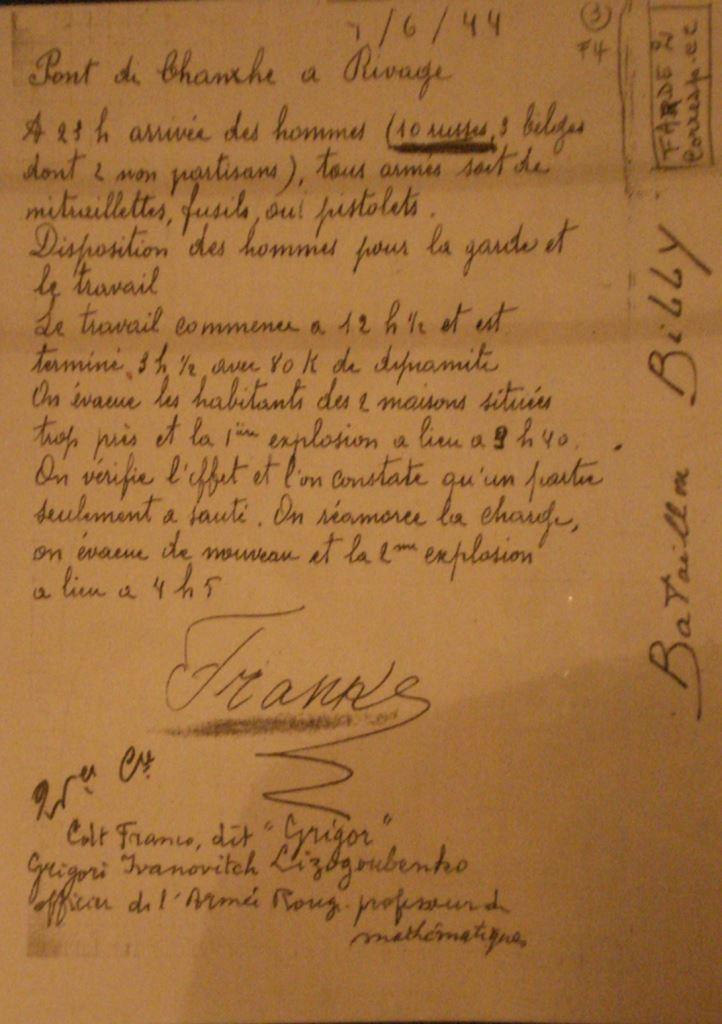 /6/44
3
#4
FARDE N 2
Corresp. ce
Pont de Chanxhe a Rivage
A 23 h arrivée des hommes (10 russes, 3 belges
dont 2 non partisans), tous armés soit de
mitraillettes, fusils, ou pistolets.
Disposition des hommes pour la garde et
le travail
Le travail commence a 12 h ½ et est
terminé 3 h ½ avec 80 K de dynamite
On évacue les habitants des 2 maisons situées
trop près et la 1ière explosion a lieu a 3 h 40.
On vérifie l'effet et l'on constate qu'un partie
seulement a sauté. On réamorce la charge,
on évacue de nouveau et la 2me explosion
a lieu a 4 h 5
Bataillon Billy
Cdt Franco, dit "Grigor"
Grigori Ivanovitch Lizogoubenko
officier de l'Armée Roug. professeur de
mathématiques